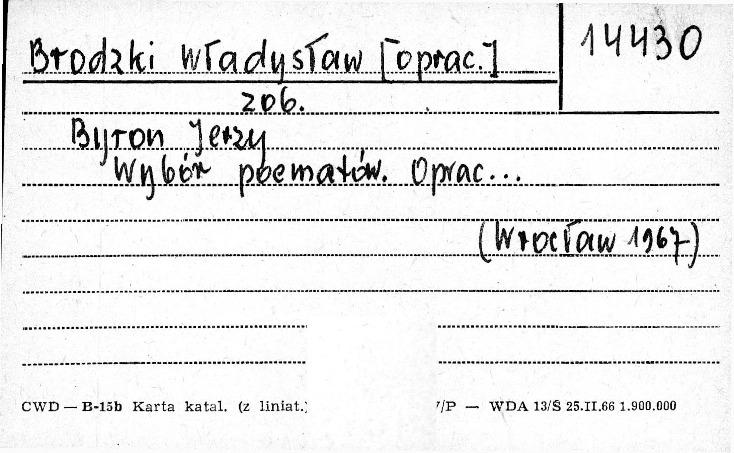 Brodzki Władysław [oprac.]
14430
zob.
Byron Jerzy
Wybór poematów. Oprac...
(Wrocław 1967)
CWD — B-15b Karta katal. (z liniat.) /P — WDA 13/Ś 25.II.66 1.900.000